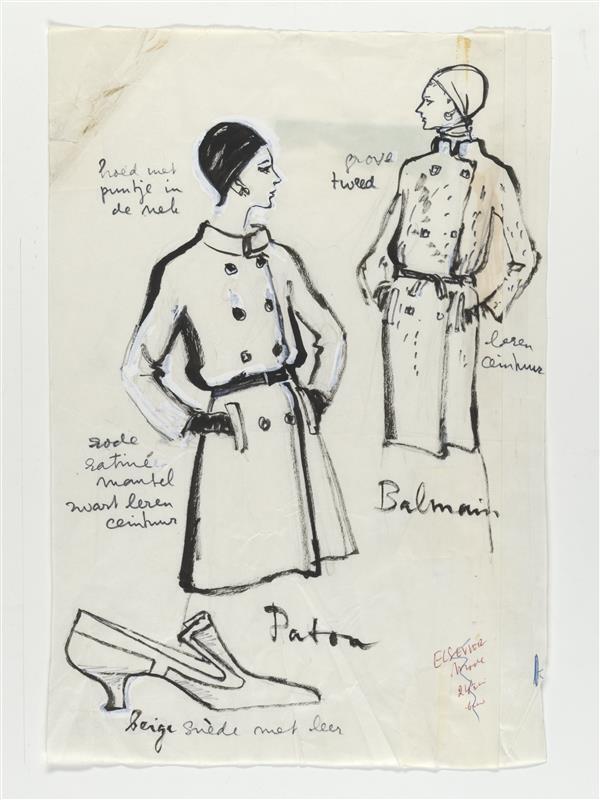 hoed met
puntje in
de nek
grove
tweed
leren
ceintuur
rode
satiné
mantel
zwart leren
ceintuur
Balmain
Patou
ELSEVIER
beige suède met leer